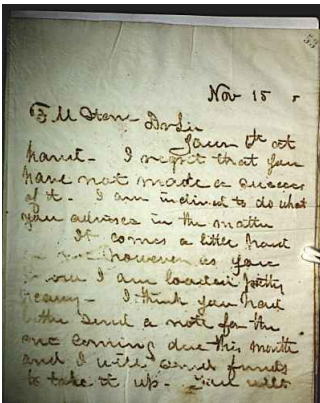 53
Nov 15
F M Stone Dr Sir
Your 6th at
hand - I regret that you
have not made a success
of it. I am inclined to do what
you advise in the matter
It comes a little hard
however as you
know I am loaded pretty
heavy - I think you had
better send a note for the
one coming due this month
and I will send funds
to take it up - Yail